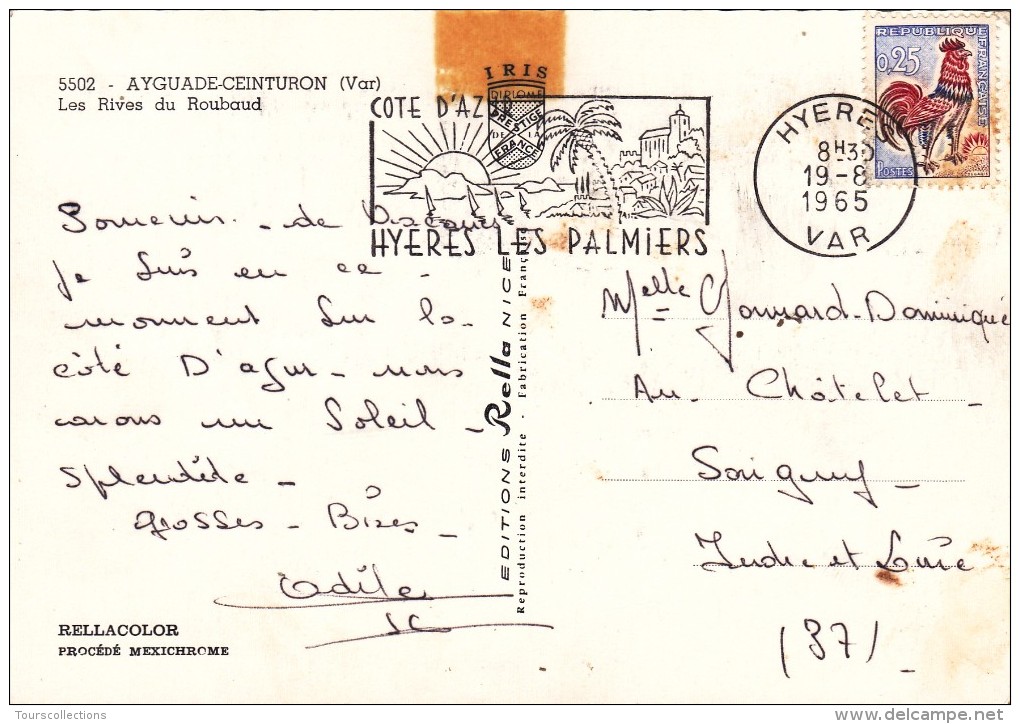 5502 - AYGUADE-CEINTURON (Var)
Les Rives du Roubaud
IRIS
DIPLOME
PRESTIGE
DE LA
FRANCE
COTE D'AZUR
HYERES LES PALMIERS
HYERES
8H30
19-8
1965
VAR
REPUBLIQUE FRANÇAISE
0,25
POSTES
Souvenir - de Vacances
je suis en ce -
moment sur la -
côté D'azur - nous
avons un Soleil -
Splendide -
grosses - Bises -
Odile
RELLACOLOR
PROCÉDÉ MEXICHROME
EDITIONS Rella NICE
Reproduction interdite - Fabrication Française
Melle Dominique
Au - Châtelet -
Sorigny -
Indre et Loire
(37) -
Tourscollections
delcampe.net